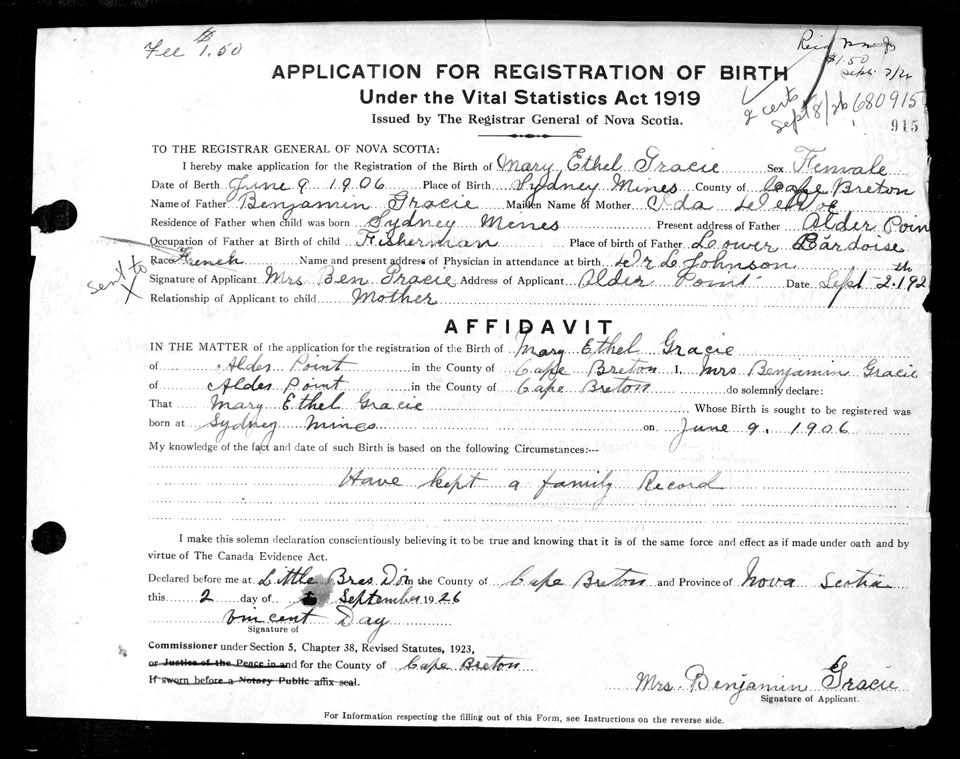 Fee $1.50
$1.50
Sept. 7/26
2 certs
Sept 8/26 680915
915
APPLICATION FOR REGISTRATION OF BIRTH
Under the Vital Statistics Act 1919
Issued by The Registrar General of Nova Scotia.
TO THE REGISTRAR GENERAL OF NOVA SCOTIA:
I hereby make application for the Registration of the Birth of Mary Ethel Gracie Sex Female
Date of Birth June 9 1906 Place of Birth Sydney Mines County of Cape Breton
Name of Father Benjamin Gracie Maiden Name of Mother Ida
Residence of Father when child was born Sydney Mines Present address of Father Alder Poin
Occupation of Father at Birth of child Fisherman Place of birth of Father Lower Bardoise
Race French Name and present address of Physician in attendance at birth Dr L Johnson
sent to
Signature of Applicant Mrs Ben Gracie Address of Applicant Alder Point Date Sept 2th 192
Relationship of Applicant to child Mother
AFFIDAVIT
IN THE MATTER of the application for the registration of the Birth of Mary Ethel Gracie
of Alder Point in the County of Cape Breton I, Mrs Benjamin Gracie
of Alder Point in the County of Cape Breton do solemnly declare:
That Mary Ethel Gracie Whose Birth is sought to be registered was
born at Sydney Mines on June 9. 1906
My knowledge of the fact and date of such Birth is based on the following Circumstances:--
Have kept a family Record
I make this solemn declaration conscientiously believing it to be true and knowing that it is of the same force and effect as if made under oath and by
virtue of The Canada Evidence Act.
Declared before me at Little Bras Dor in the County of Cape Breton and Province of Nova Scotia
this 2 day of September 1926
Vincent Day
Signature of
Commissioner under Section 5, Chapter 38, Revised Statutes, 1923,
or Justice of the Peace in and for the County of Cape Breton
If sworn before a Notary Public affix seal.
Mrs. Benjamin Gracie
Signature of Applicant.
For Information respecting the filling out of this Form, see Instructions on the reverse side.